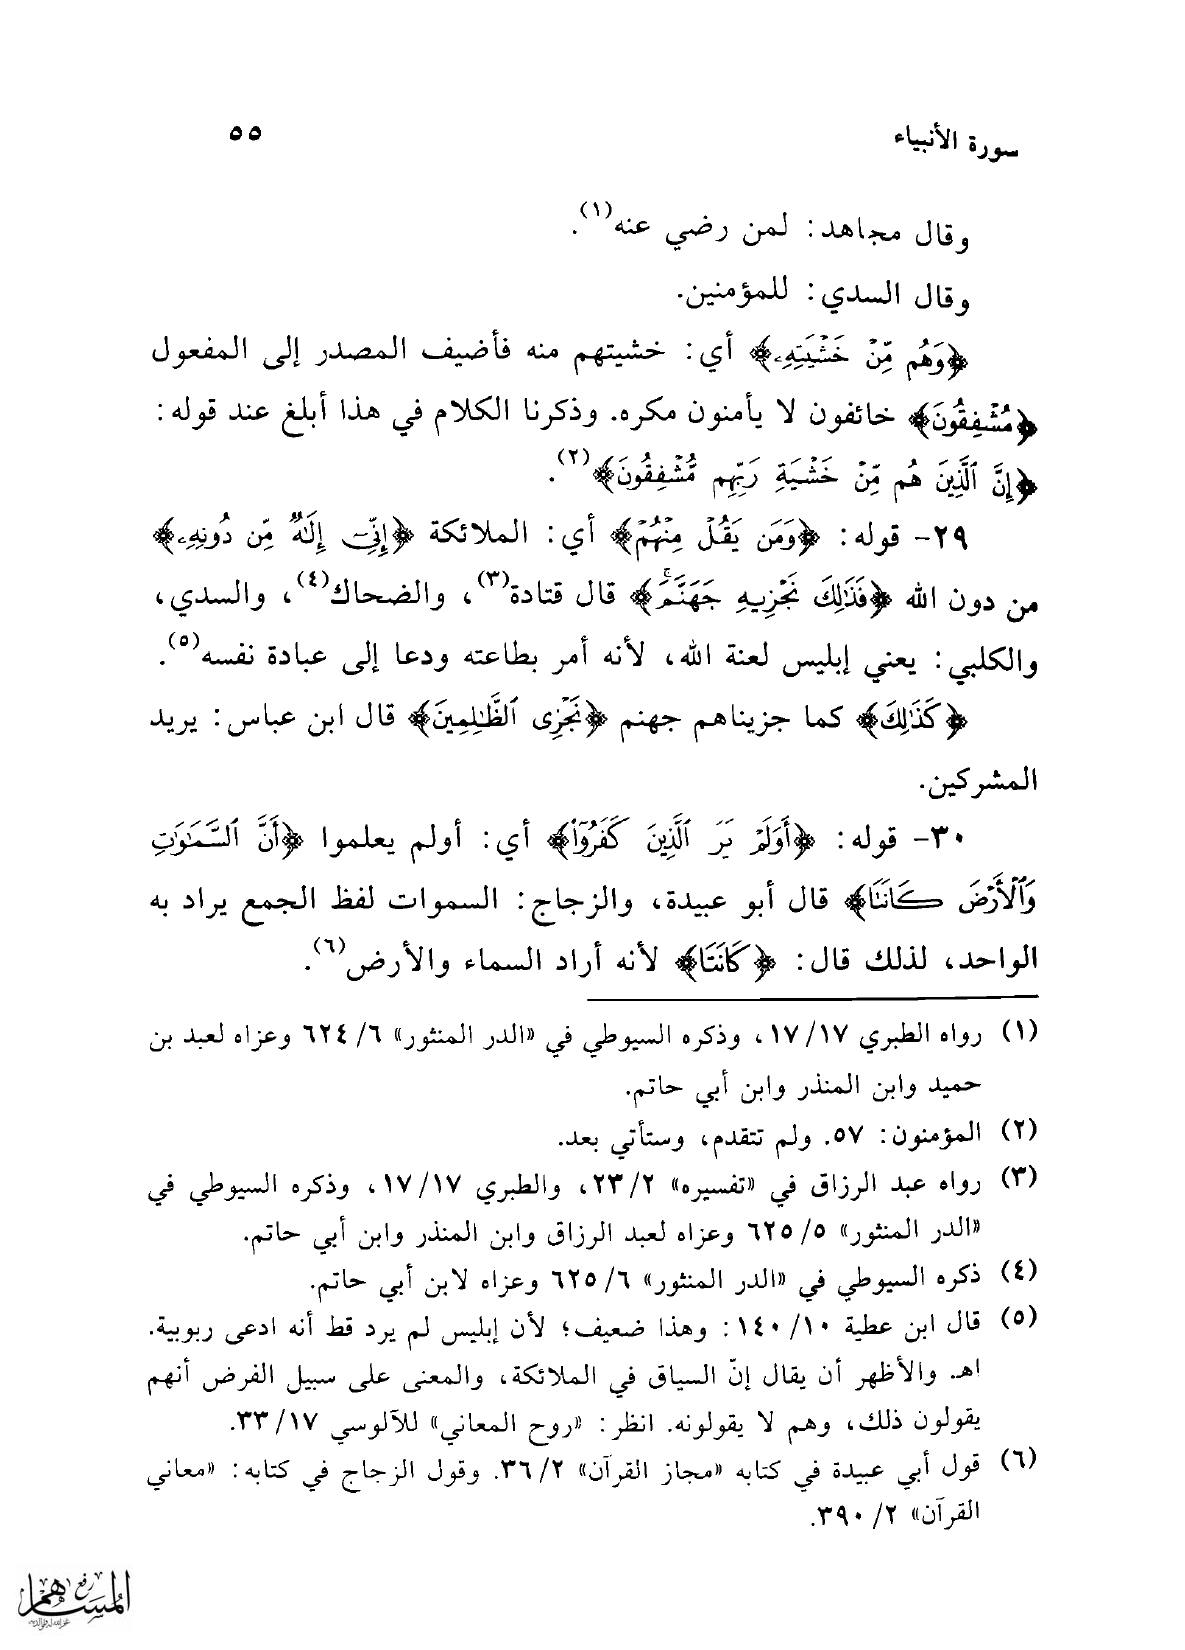 سورة الأنبياء ٥٥
وقال مجاهد: لمن رضي عنه(١).
وقال السدي: للمؤمنين.
﴿وَهُم مِّنْ خَشْيَتِهِۦ﴾ أي: خشيتهم منه فأضيف المصدر إلى المفعول
﴿مُشْفِقُونَ﴾ خائفون لا يأمنون مكره. وذكرنا الكلام في هذا أبلغ عند قوله:
﴿إِنَّ ٱلَّذِينَ هُم مِّنْ خَشْيَةِ رَبِّهِم مُّشْفِقُونَ﴾(٢).
٢٩- قوله: ﴿وَمَن يَقُلْ مِنْهُمْ﴾ أي: الملائكة ﴿إِنِّىٓ إِلَٰهٌ مِّن دُونِهِۦ﴾
من دون الله ﴿فَذَٰلِكَ نَجْزِيهِ جَهَنَّمَۚ﴾ قال قتادة(٣)، والضحاك(٤)، والسدي،
والكلبي: يعني إبليس لعنة الله، لأنه أمر بطاعته ودعا إلى عبادة نفسه(٥).
﴿كَذَٰلِكَ﴾ كما جزيناهم جهنم ﴿نَجْزِى ٱلظَّٰلِمِينَ﴾ قال ابن عباس: يريد
المشركين.
٣٠- قوله: ﴿أَوَلَمْ يَرَ ٱلَّذِينَ كَفَرُوٓا۟﴾ أي: أولم يعلموا ﴿أَنَّ ٱلسَّمَٰوَٰتِ
وَٱلْأَرْضَ كَانَتَا﴾ قال أبو عبيدة، والزجاج: السموات لفظ الجمع يراد به
الواحد، لذلك قال: ﴿كَانَتَا﴾ لأنه أراد السماء والأرض(٦).
(١) رواه الطبري ١٧/١٧، وذكره السيوطي في «الدر المنثور» ٦/ ٦٢٤ وعزاه لعبد بن
حميد وابن المنذر وابن أبي حاتم.
(٢) المؤمنون: ٥٧. ولم تتقدم، وستأتي بعد.
(٣) رواه عبد الرزاق في «تفسيره» ٢/ ٢٣، والطبري ١٧/١٧، وذكره السيوطي في
«الدر المنثور» ٥/ ٦٢٥ وعزاه لعبد الرزاق وابن المنذر وابن أبي حاتم.
(٤) ذكره السيوطي في «الدر المنثور» ٦/ ٦٢٥ وعزاه لابن أبي حاتم.
(٥) قال ابن عطية ١٠/ ١٤٠: وهذا ضعيف؛ لأن إبليس لم يرد قط أنه ادعى ربوبية.
اهـ. والأظهر أن يقال إنّ السياق في الملائكة، والمعنى على سبيل الفرض أنهم
يقولون ذلك، وهم لا يقولونه. انظر: «روح المعاني» للآلوسي ١٧/ ٣٣.
(٦) قول أبي عبيدة في كتابه «مجاز القرآن» ٢/ ٣٦. وقول الزجاج في كتابه: «معاني
القرآن» ٢/ ٣٩٠.
رفع
المساهم